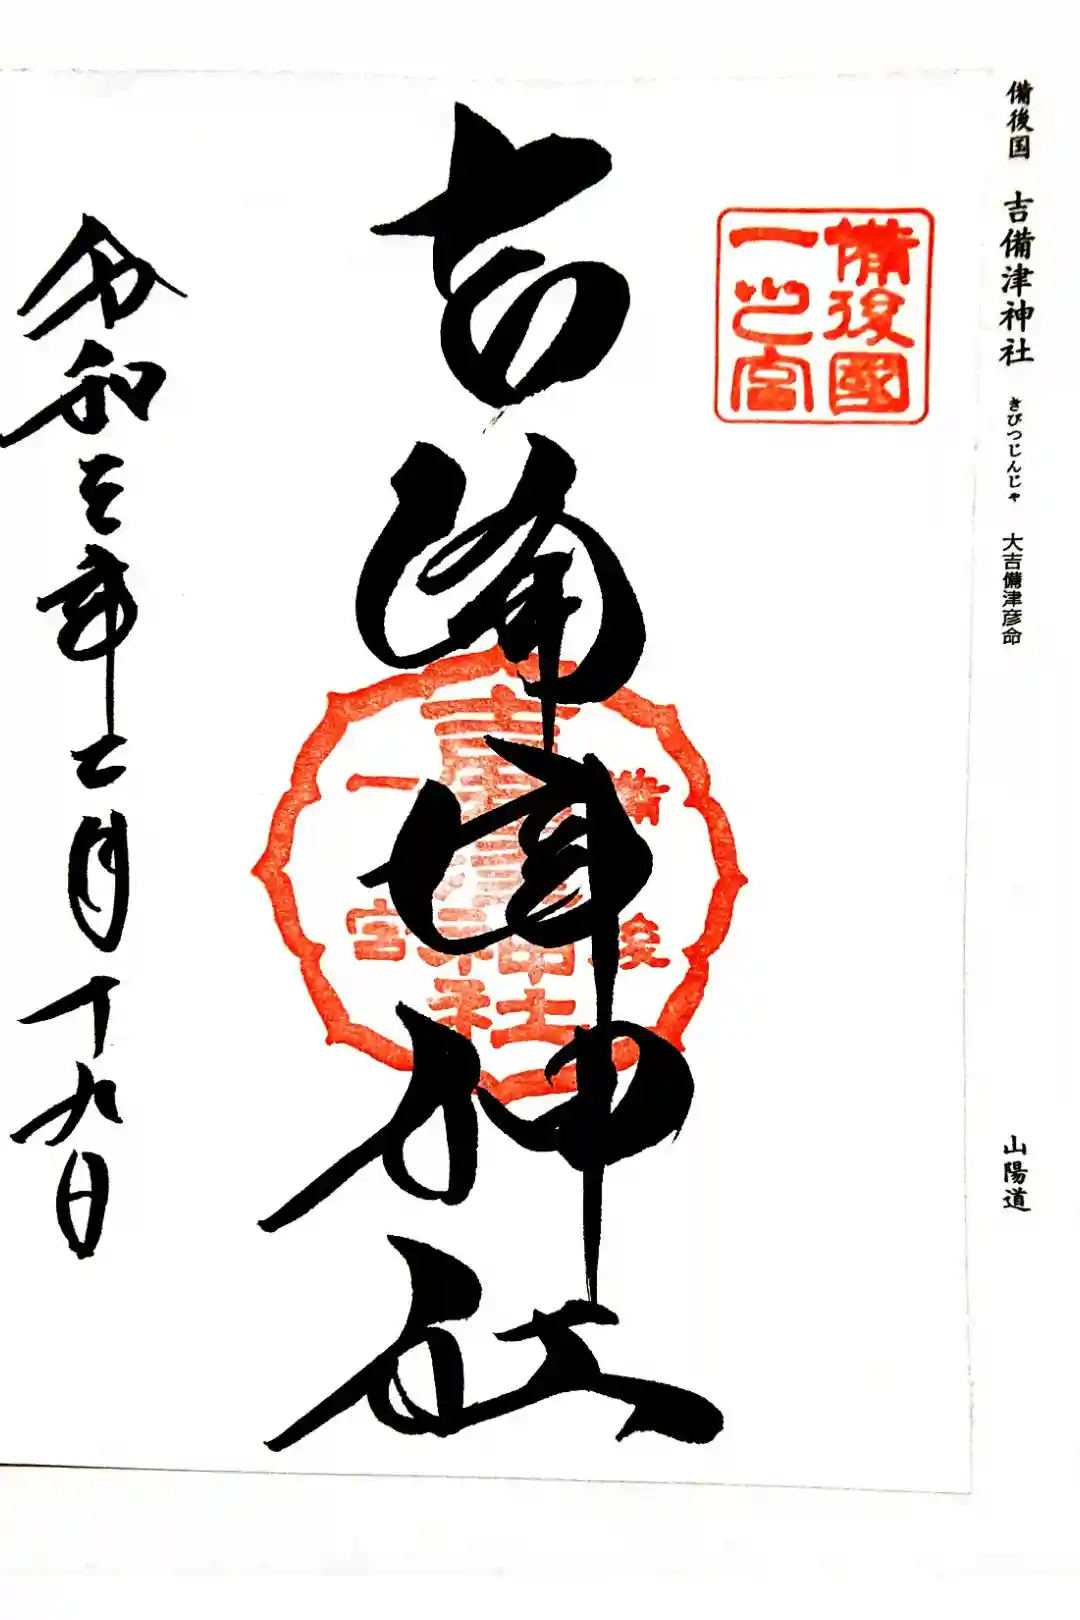 備後国 吉備津神社 きびつじんじゃ 大吉備津彦命 山陽道
備後國
一之宮
吉備津神社
備後
吉備津神社
一宮
令和三年二月十九日